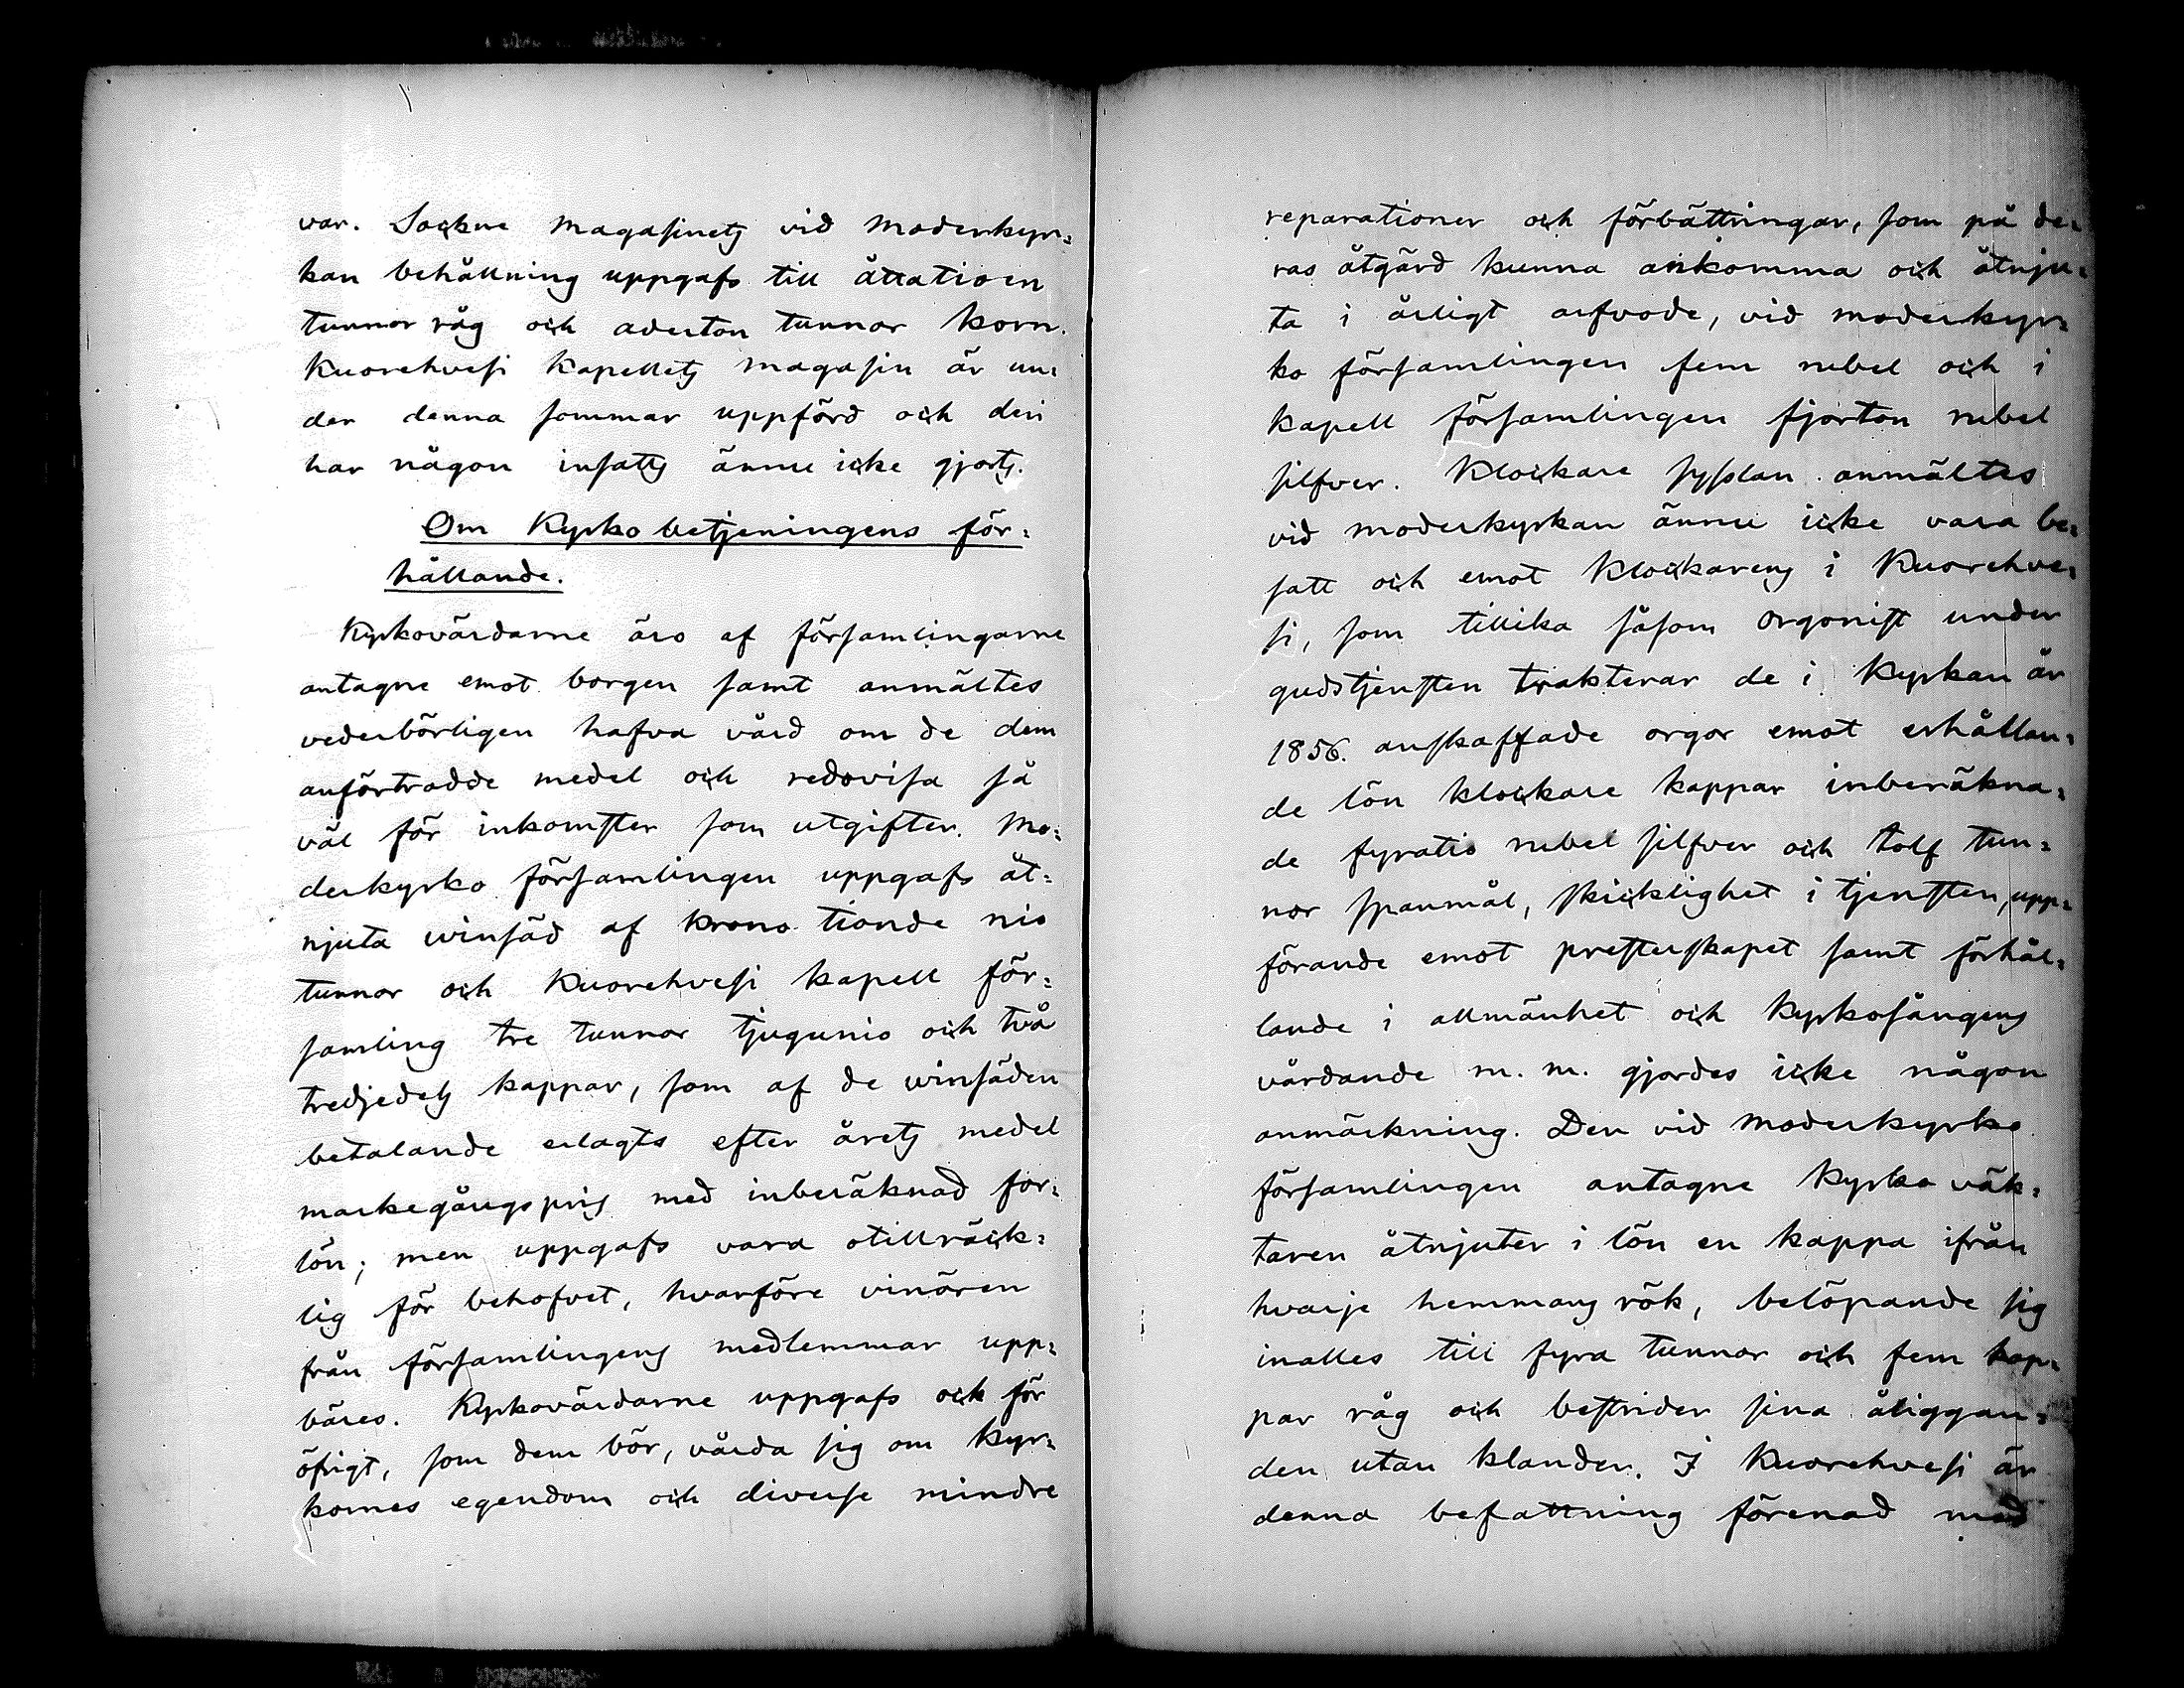 var. Sockne magasinets vid moderkyr=
kan behållning uppgafs till åttatioen
tunnor råg och aderton tunnor korn.
Kuorehvesi kapellets magasin är un=
der denna sommar uppförd och deri
har någon insatts ännu icke gjorts.
Om Kyrko betjeningens för=
hållande.
Kyrkovärdarne äro af församlingarne
antagne emot borgen samt anmältes
vederbörligen hafva vård om de dem
anförtrodde medel och redovisa så
väl för inkomster som utgifter. Mo=
derkyrko församlingen uppgafs åt=
njuta winsäd af krono tionde nio
tunnor och Kuorehvesi kapell för=
samling tre tunnor tjugunio och två
tredjedels kappar, som af de winsäden
betalande erlagts efter årets medel
markegångspris med inberäknad for=
lön; men uppgafs vara otillräck=
lig för behofvet, hvarföre vinören
från församlingens medlemmar upp=
bäres. Kyrkovärdarne uppgafs ock för
öfrigt, som dem bör, vårda sig om kyr=
kornes egendom och diverse mindre
reparationer och förbättringar, som på de=
ras åtgärd kunna ankomma och åtnju=
ta i årligt arfvode, vid moderkyr=
ko församlingen fem rubel och i
kapell församlingen fjorton rubel
silfver. Klockare sysslan anmältes
vid moderkyrkan ännu icke vara be=
satt och emot klockarens i Kuorehve=
si, som tillika såsom organist under
gudstjensten trakterar de i kyrkan år
1856. anskaffade orgor emot erhållan=
de lön klockare kappar inberäkna=
de fyratio rubel silfver och tolf tun=
nor spanmål, skicklighet i tjensten, upp=
förande emot presterskapet samt förhål=
lande i allmänhet och kyrkosångens
vårdande m. m. gjordes icke någon
anmärkning. Den vid moderkyrko
församlingen antagne kyrko väk=
taren åtnjuter i lön en kappa ifrån
hvarje hemmans rök, belöpande sig
inalles till fyra tunnor och fem kap=
par råg och bestrider sina åliggan=
den utan klander. I Kuorehvesi är
denna befattning förenad med